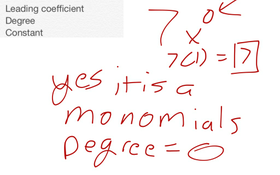 Leading coefficient
Degree
Constant
7x⁰
7(1) = 7
yes it is a
monomials
Degree = 0